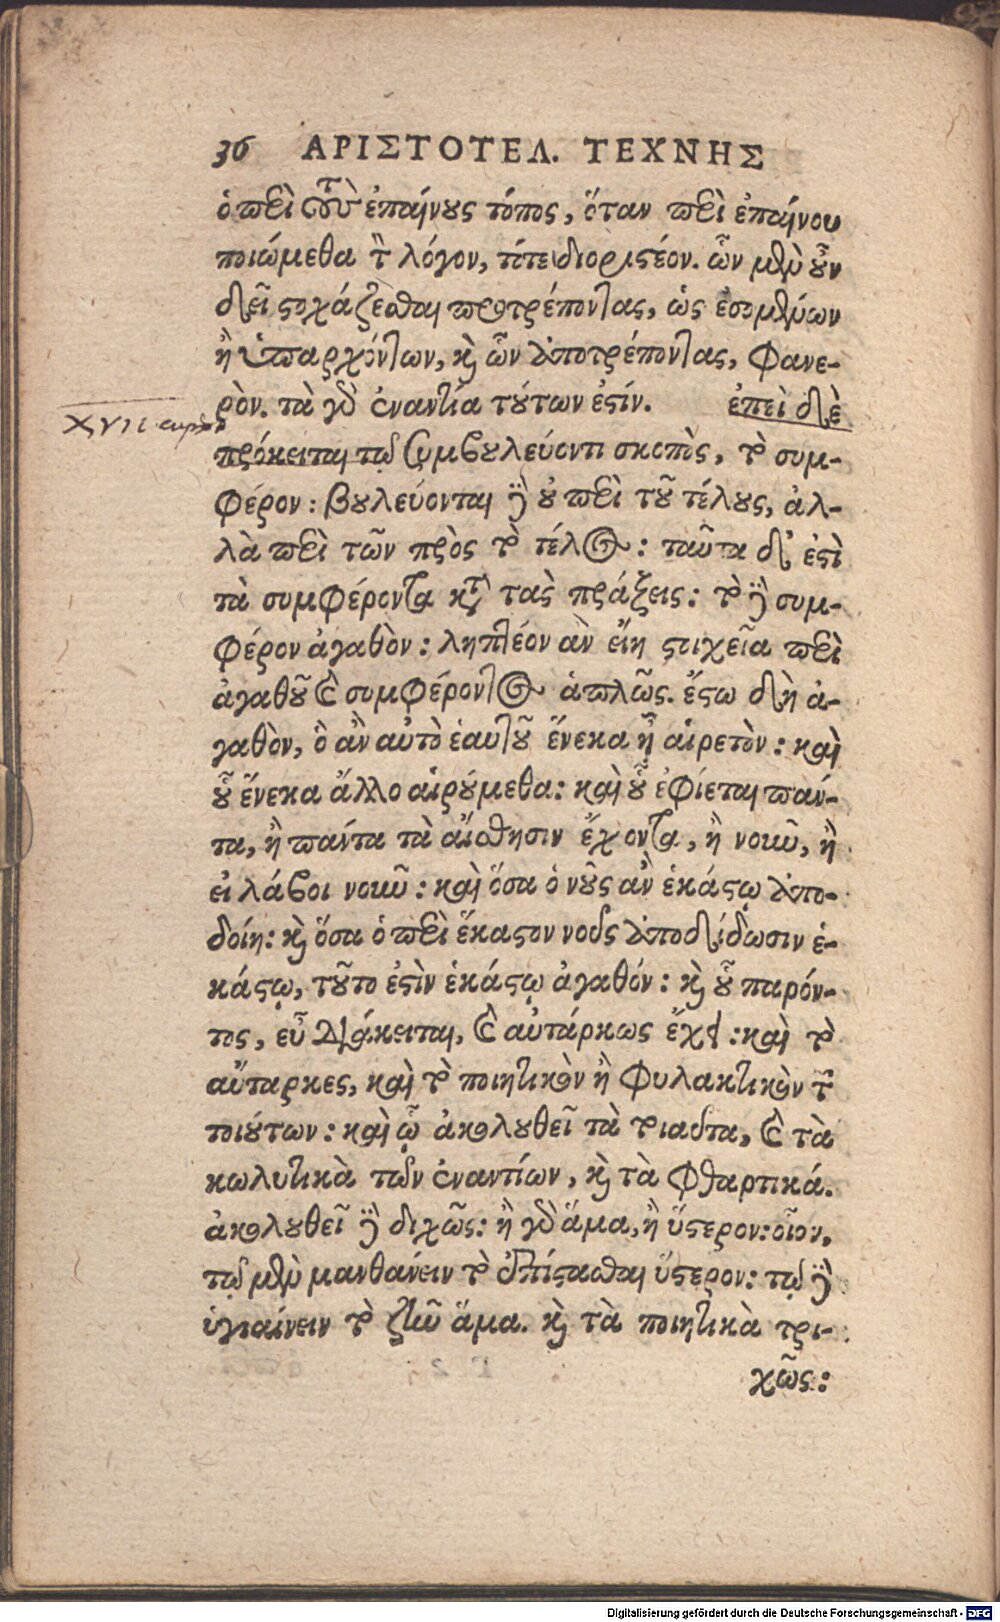 36 ΑΡΙΣΤΟΤΕΛ. ΤΕΧΝΗΣ
ὁ περὶ τοὺς ἐπαίνους τόπος, ὅταν περὶ ἐπαίνου
ποιώμεθα τὸν λόγον, τότε διοριστέον. ὧν μὲν οὖν
δεῖ στοχάζεσθαι προτρέποντας, ὡς ἐσομένων
ἢ ὑπαρχόντων, καὶ ὧν ἀποτρέποντας, φανε-
ρὸν. τὰ γὰρ ἐναντία τούτων ἐστίν. ἐπεὶ δὲ
XVII
πρόκειται τῷ συμβουλεύοντι σκοπὸς, τὸ συμ-
φέρον: βουλεύονται δὲ οὐ περὶ τοῦ τέλους, ἀλ-
λὰ περὶ τῶν πρὸς τὸ τέλος: ταῦτα δ' ἐστὶ
τὰ συμφέροντα κατὰ τὰς πράξεις: τὸ δὲ συμ-
φέρον ἀγαθὸν: ληπτέον ἂν εἴη στοιχεῖα περὶ
ἀγαθοῦ καὶ συμφέροντος ἁπλῶς. ἔστω δὴ ἀ-
γαθὸν, ὃ ἂν αὐτὸ ἑαυτοῦ ἕνεκα ᾖ αἱρετὸν: καὶ
οὗ ἕνεκα ἄλλο αἱρούμεθα: καὶ οὗ ἐφίεται πάν-
τα, ἢ πάντα τὰ αἴσθησιν ἔχοντα, ἢ νοῦν, ἢ
εἰ λάβοι νοῦν: καὶ ὅσα ὁ νοῦς ἂν ἑκάστῳ ἀπο-
δοίη: καὶ ὅσα ὁ περὶ ἕκαστον νοῦς ἀποδίδωσιν ἑ-
κάστῳ, τοῦτο ἐστὶν ἑκάστῳ ἀγαθόν: καὶ οὗ παρόν-
τος, εὖ διάκειται, καὶ αὐτάρκως ἔχει: καὶ τὸ
αὔταρκες, καὶ τὸ ποιητικὸν ἢ φυλακτικὸν τῶν
τοιούτων: καὶ ᾧ ἀκολουθεῖ τὰ τοιαῦτα, καὶ τὰ
κωλυτικὰ τῶν ἐναντίων, καὶ τὰ φθαρτικά.
ἀκολουθεῖ δὲ διχῶς: ἢ γὰρ ἅμα, ἢ ὕστερον: οἷον,
τῷ μὲν μανθάνειν τὸ ἐπίστασθαι ὕστερον: τῷ δὲ
ὑγιαίνειν τὸ ζῆν ἅμα. καὶ τὰ ποιητικὰ τρι-
χῶς:
Digitalisierung gefördert durch die Deutsche Forschungsgemeinschaft - DFG